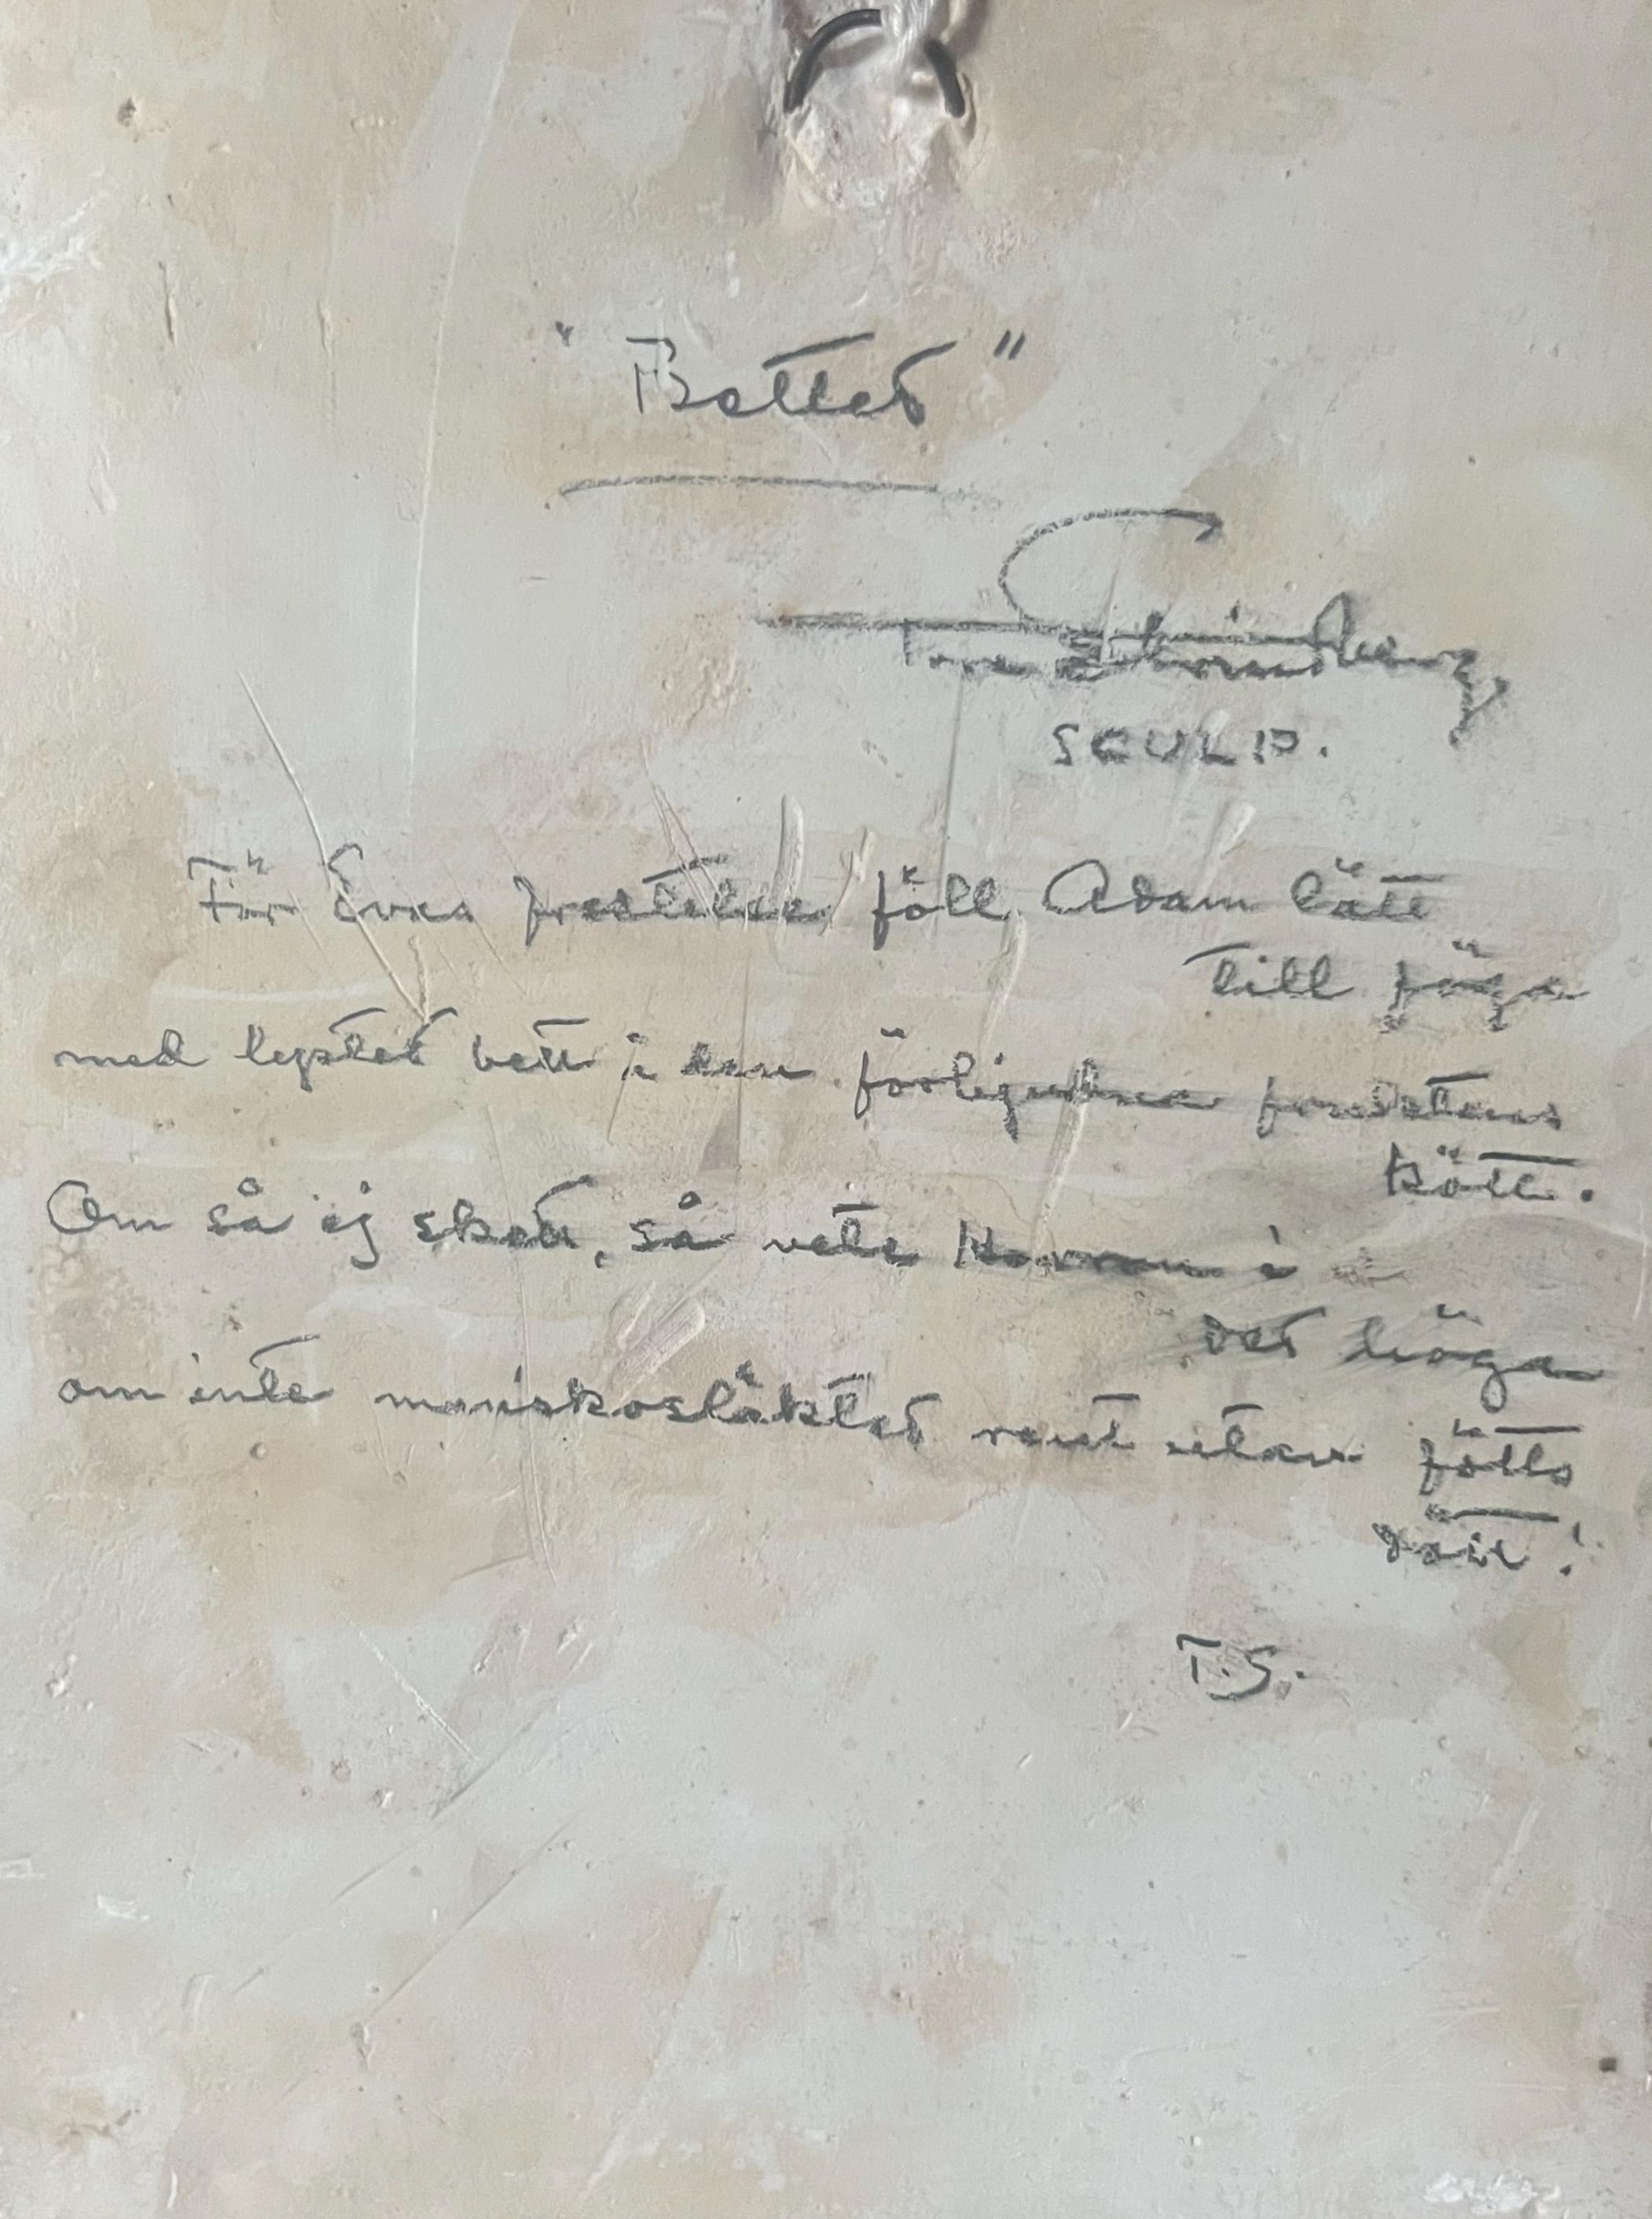 "Bettet"
Tore Strindberg
SCULP.
För Evas frestelse föll Adam lätt
till föga
med lystet bett i den förbjudna fruktens
kött.
Om så ej skett, så vete Herren i
det höga
om inte mäniskosläktet rent utav fötts
dött!
T.S.